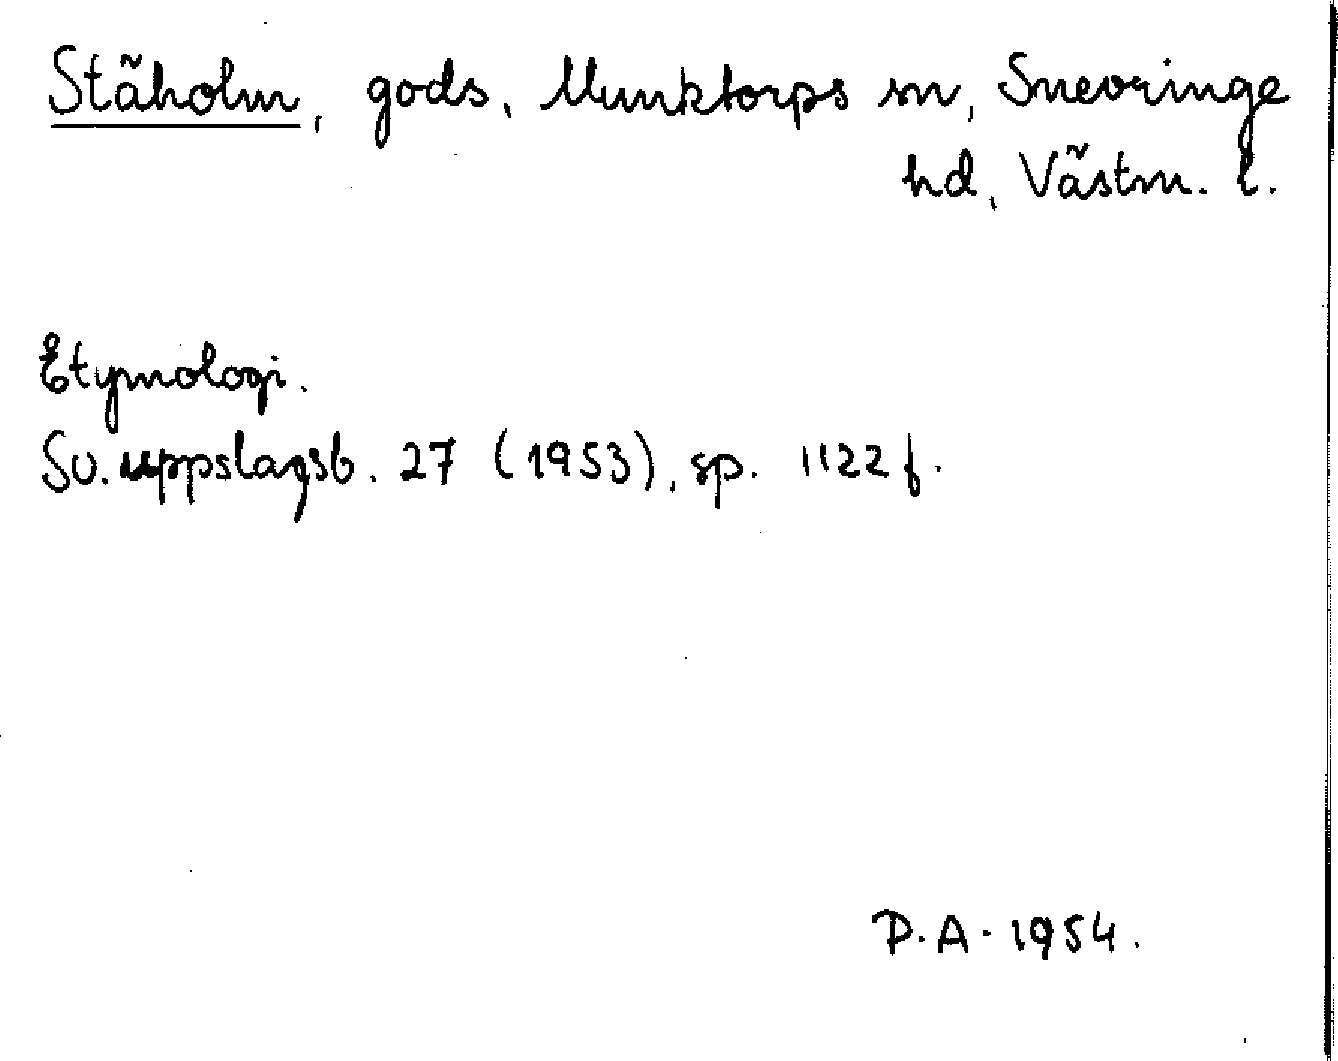 Stäholm, gods, Munktorps sn, Snevringe
hd, Västm. l.
Etymologi.
Sv. uppslagsb. 27 (1953), sp. 1122 f.
P.A. 1954.